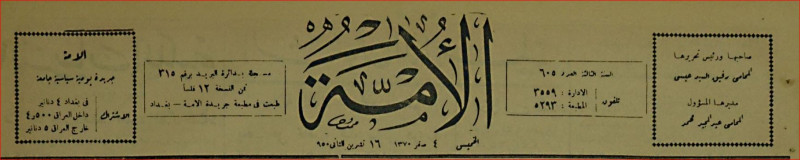 صاحبها ورئيس تحريرها
المحامي رفيق السيد عيسى
مديرها المسؤول
المحامي عبد المجيد محمد
السنة الثالثة العدد ٦٠٥
تلفون
الادارة : ٣٥٥٩
المطبعة : ٥٢٩٣
الأمة
الخميس ٤ صفر ١٣٧٠ ١٦ تشرين الثاني ٩٥٠
مسجلة بدائرة البريد برقم ٣١٥
ثمن النسخة ١٢ فلساً
طبعت في مطبعة جريدة الامة - بغداد
الامة
جريدة يومية سياسية جامعة
الاشتراك
في بغداد ٤ دنانير
داخل العراق ٤٫٥٠٠
خارج العراق ٥ دنانير